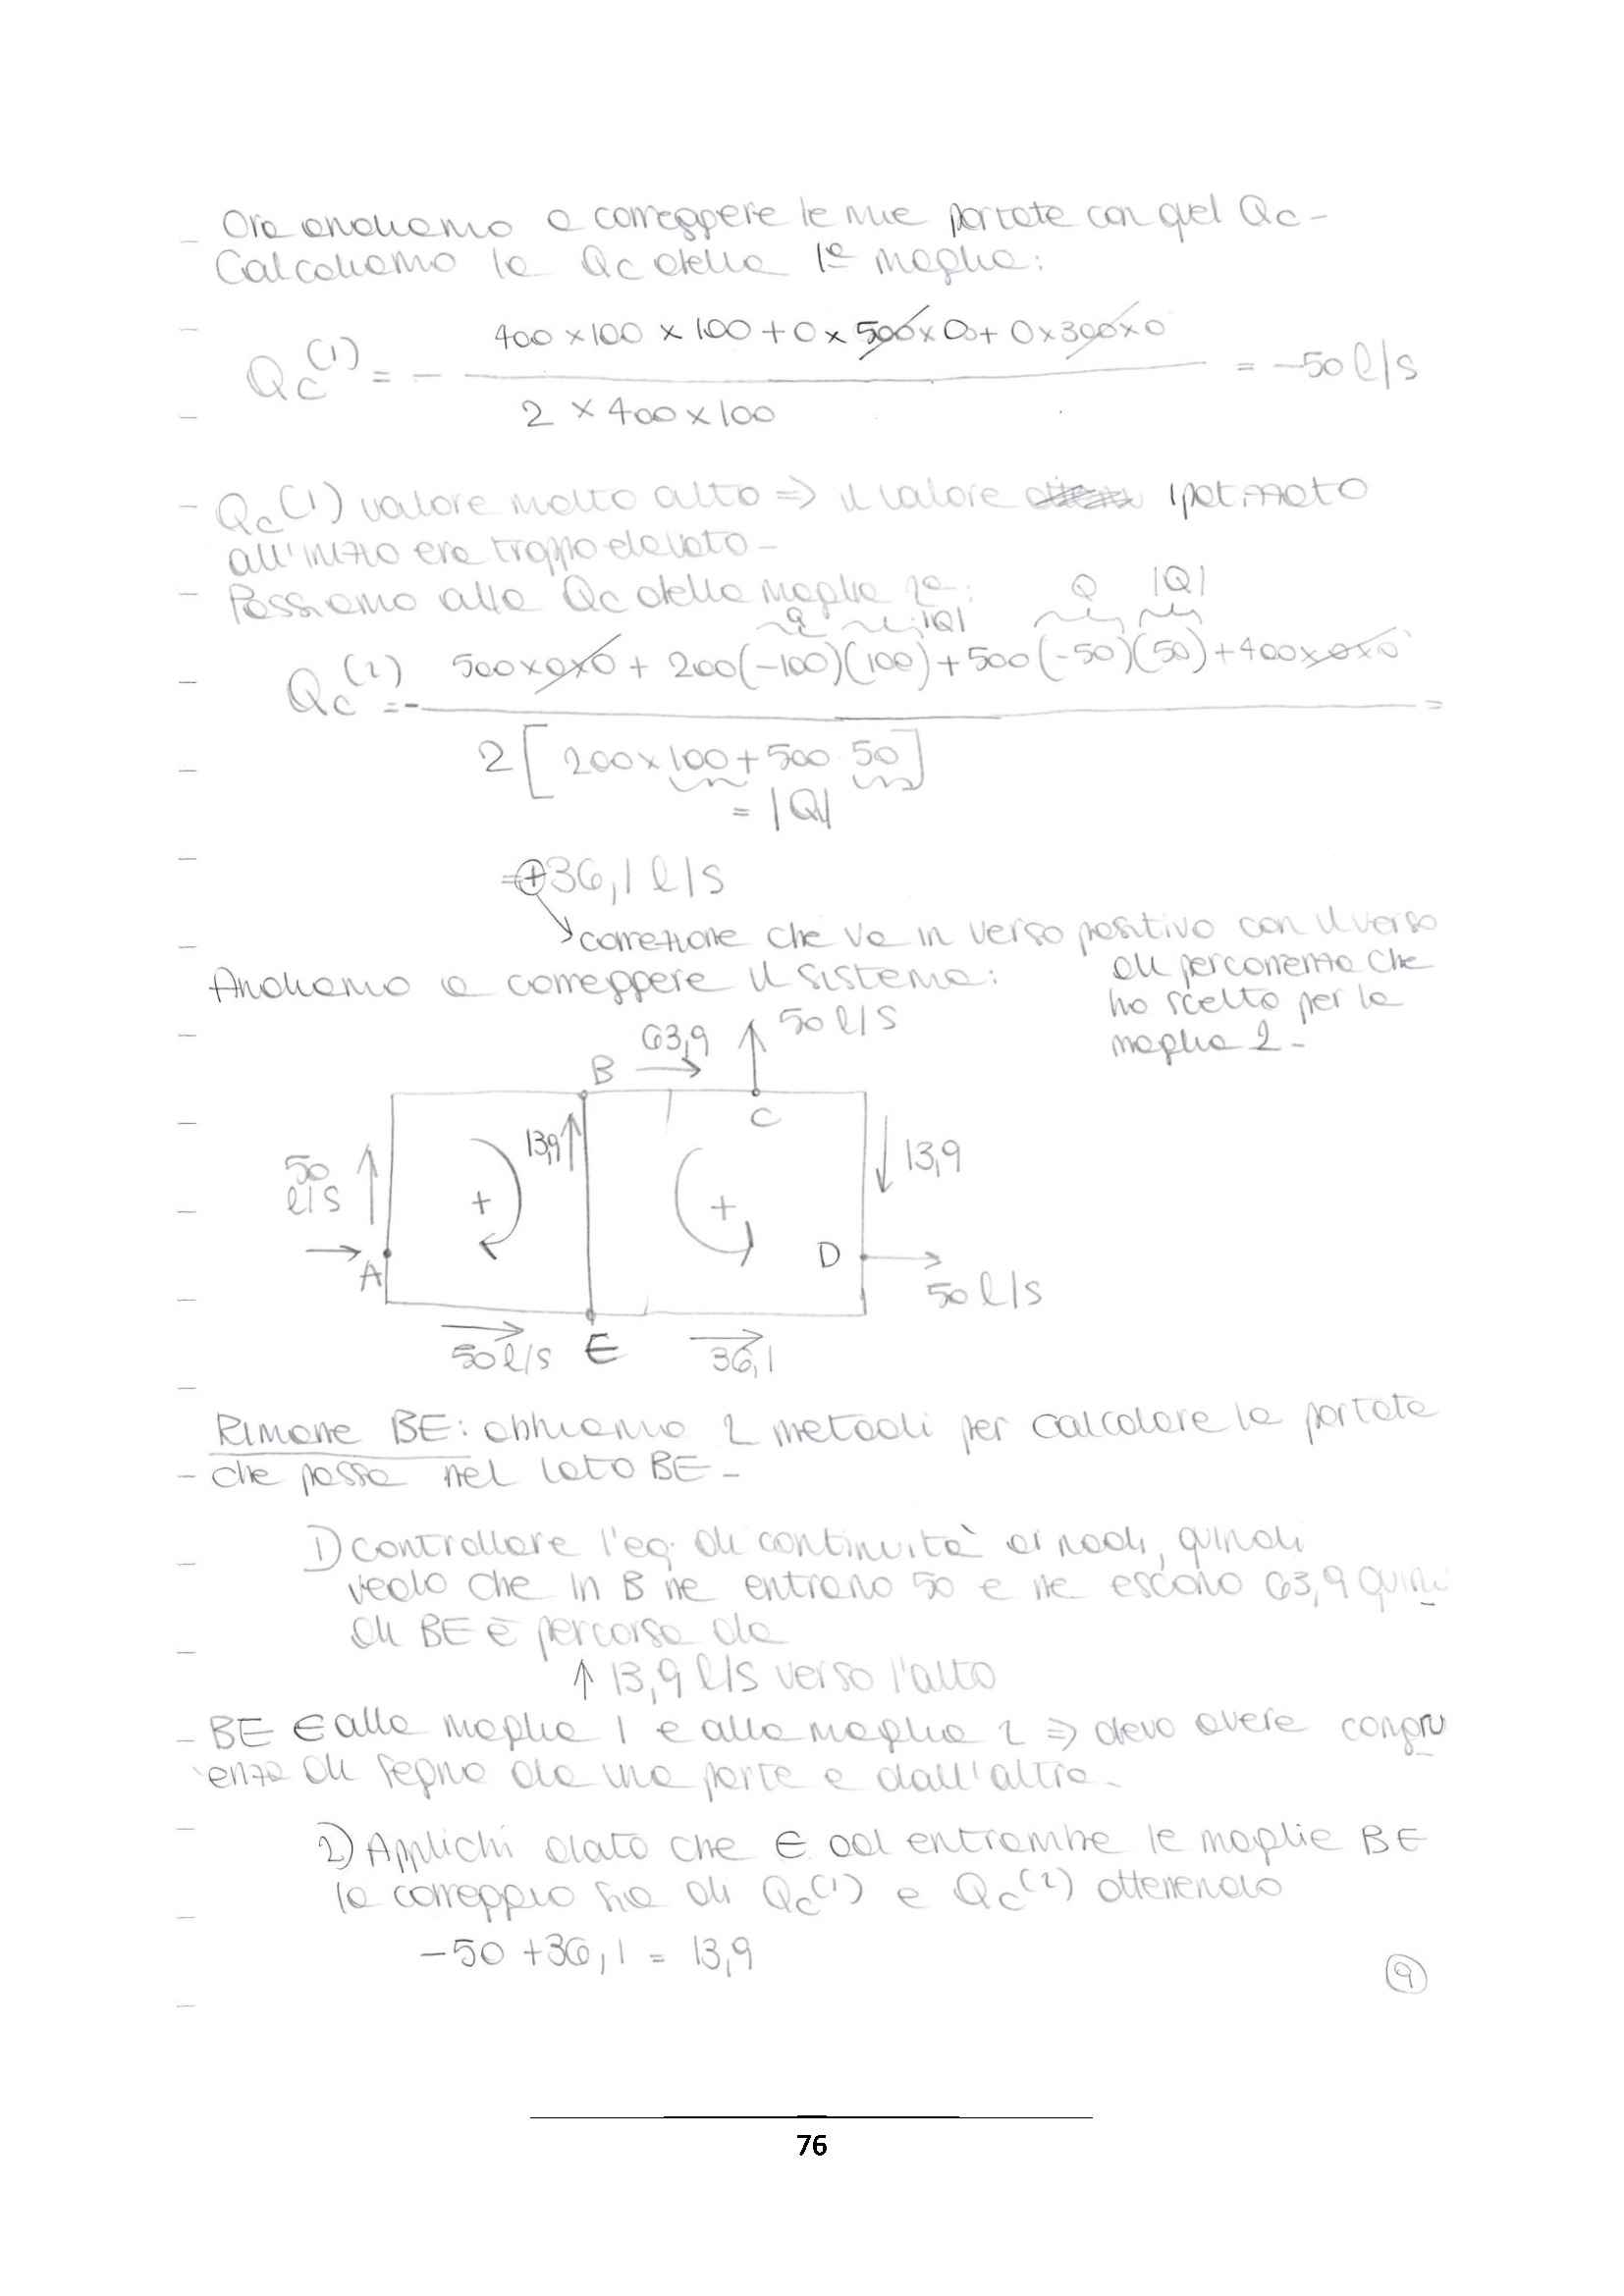 Ora andiamo a correggere le mie portate con quel Qc -
Calcoliamo la Qc della 1ª maglia:
Qc(1) = - (400 x 100 x 100 + 0 x 500 x 0 + 0 x 300 x 0) / (2 x 400 x 100) = -50 l/s
Qc(1) valore molto alto => il valore ipotizzato
all'inizio era troppo elevato -
Passiamo alla Qc della maglia 2ª:
Q |Q| Q |Q|
Qc(2) = - (500x0x0 + 200(-100)(100) + 500(-50)(50) + 400x0x0) / (2[200x100 + 500 50]) =
= |Q|
= +36,1 l/s
correzione che va in verso positivo con il verso
di percorrenza che
ho scelto per la
maglia 2 -
Andiamo a correggere il sistema:
50 l/s
63,9
B
C
13,9
13,9
50
l/s
+
+
D
A
50 l/s
50 l/s
E
36,1
Rimane BE: abbiamo 2 metodi per calcolare la portata
che passa nel lato BE -
1) controllare l'eq. di continuità ai nodi, quindi
vedo che in B ne entrano 50 e ne escono 63,9 quin
di BE è percorsa da
↑ 13,9 l/s verso l'alto
BE ∈ alla maglia 1 e alla maglia 2 => devo avere congru
enza di segno da una parte e dall'altra.
2) Applichi dato che ∈ ad entrambe le maglie BE
la correggo sia di Qc(1) e Qc(2) ottenendo
-50 + 36,1 = 13,9
9
76